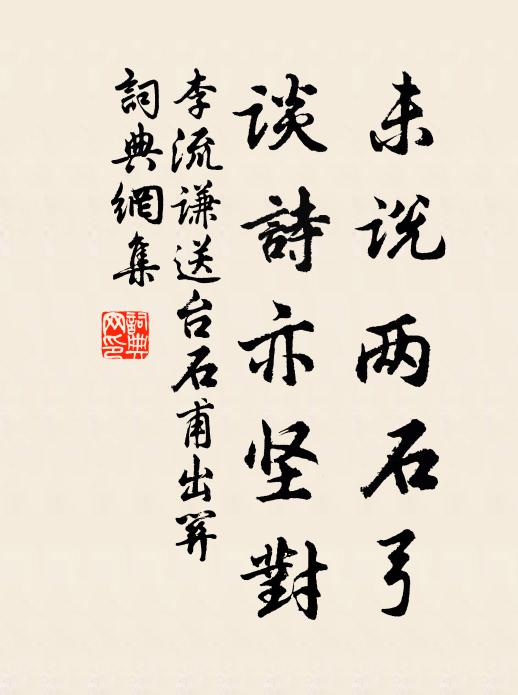 未说两石弓
谈詩亦坚對
李流谦送台石甫出關
詞典網集
詞典網印